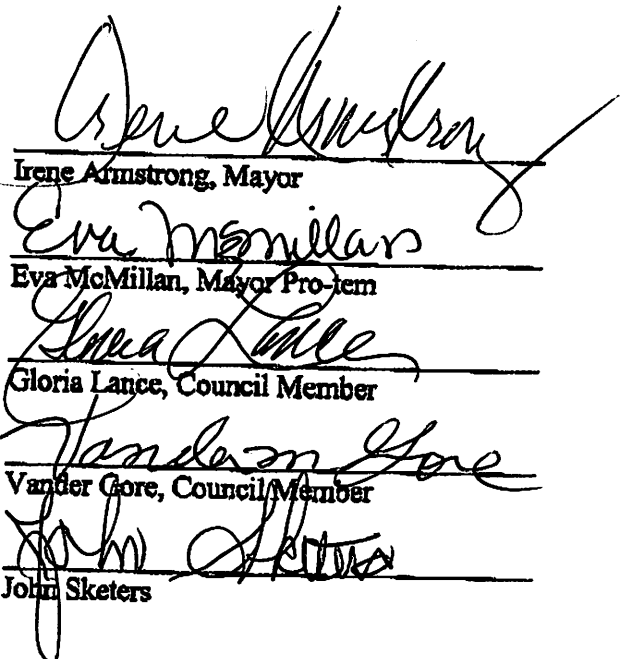 Irene Armstrong
Irene Armstrong, Mayor
Eva McMillan
Eva McMillan, Mayor Pro-tem
Gloria Lance
Gloria Lance, Council Member
Vander m Gore
Vander Gore, Council Member
John Sketers
John Sketers